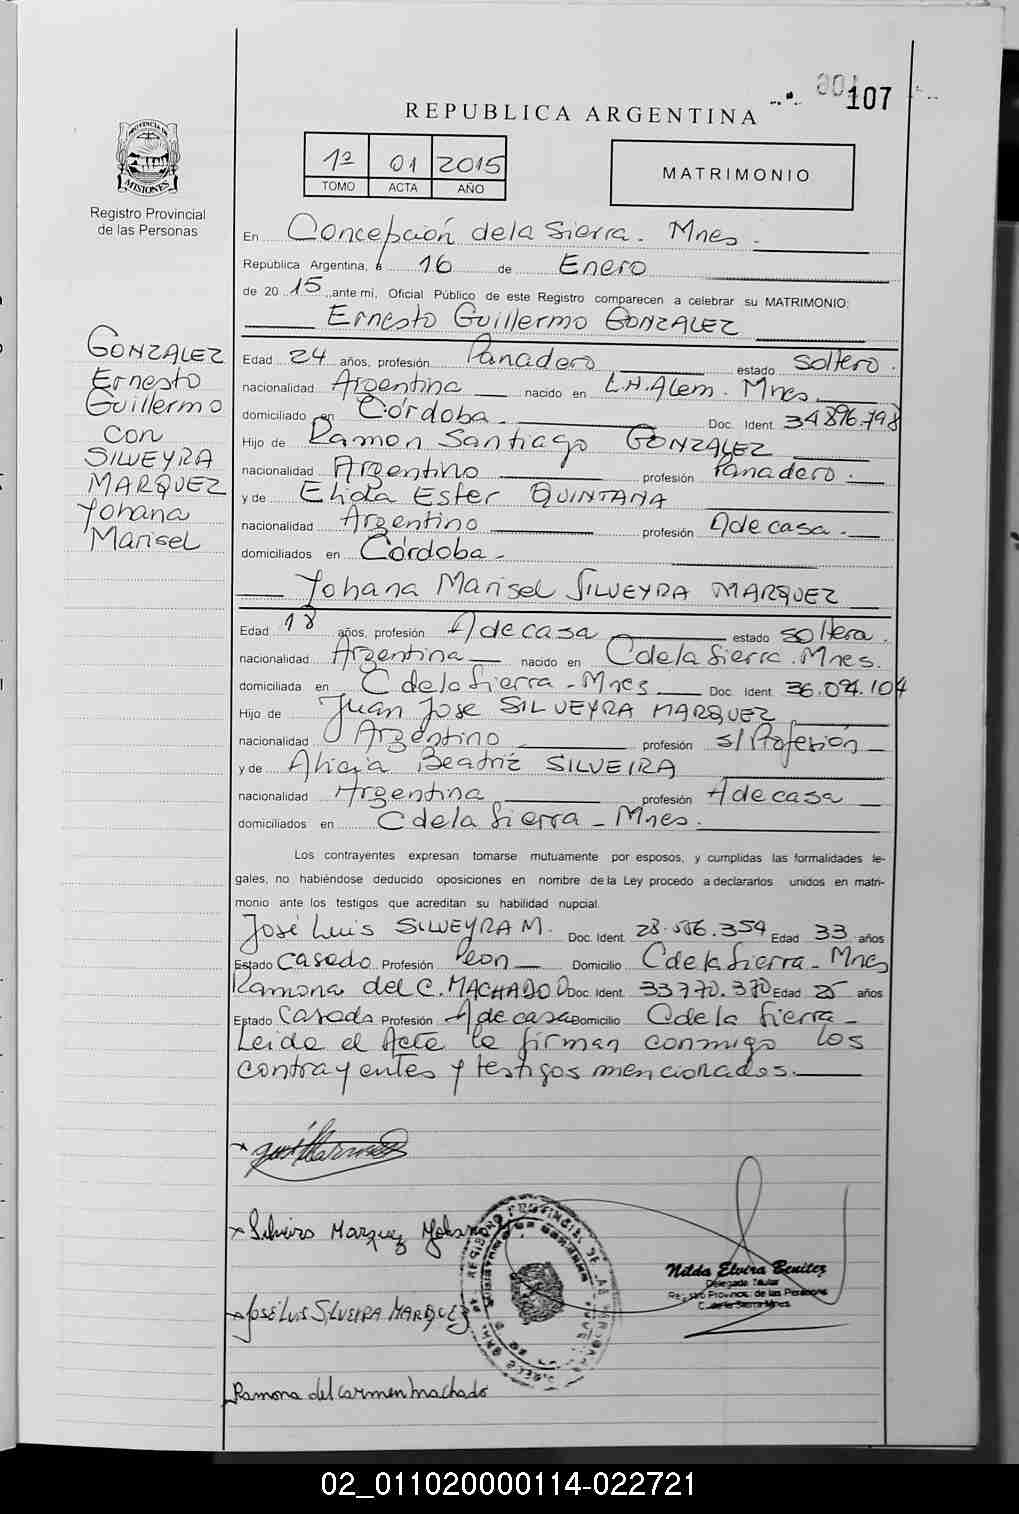 107
REPUBLICA ARGENTINA
1º 01 2015
TOMO ACTA AÑO
MATRIMONIO
PROVINCIA DE MISIONES
Registro Provincial
de las Personas
En Concepción de la Sierra. Mnes.
República Argentina, a 16 de Enero
de 2015, ante mi, Oficial Público de este Registro comparecen a celebrar su MATRIMONIO:
Ernesto Guillermo GONZALEZ
GONZALEZ
Ernesto
Guillermo
con
SILVEYRA
MARQUEZ
Yohana
Marisel
Edad 24 años, profesión Panadero estado soltero.
nacionalidad Argentina nacido en L.N.Alem. Mnes.
domiciliado en Córdoba. Doc. Ident. 34.896.798
Hijo de Ramon Santiago GONZALEZ
nacionalidad Argentino profesión Panadero.
y de Elida Ester QUINTANA
nacionalidad Argentino profesión A de casa.
domiciliados en Córdoba.
Yohana Marisel SILVEYRA MARQUEZ
Edad 18 años, profesión A de casa estado soltera.
nacionalidad Argentina nacido en C de la Sierra. Mnes.
domiciliada en C de la Sierra - Mnes. Doc. Ident. 36.094.104
Hijo de Juan Jose SILVEYRA MARQUEZ
nacionalidad Argentino profesión s/Profesión
y de Alicia Beatriz SILVEIRA
nacionalidad Argentina profesión A de casa
domiciliados en C de la Sierra - Mnes.
Los contrayentes expresan tomarse mutuamente por esposos, y cumplidas las formalidades le-
gales, no habiéndose deducido oposiciones en nombre de la Ley procedo a declararlos unidos en matri-
monio ante los testigos que acreditan su habilidad nupcial.
José Luis SILVEYRA M. Doc. Ident. 28.556.354 Edad 33 años
Estado Casado Profesión Peon Domicilio C de la Sierra - Mnes
Ramona del C. MACHADO Doc. Ident. 33770.370 Edad 25 años
Estado Casada Profesión A de casa Domicilio C de la Sierra -
Leida el Acta la firman conmigo los
contrayentes y testigos mencionados.
x Silveira Marquez Yohana
x José Luis SILVEIRA MARQUEZ
Nilda Elvira Benitez
Delegada Titular
Registro Provincial de las Personas
C. de la Sierra-Mnes
Ramona del Carmen Machado
02_011020000114-022721